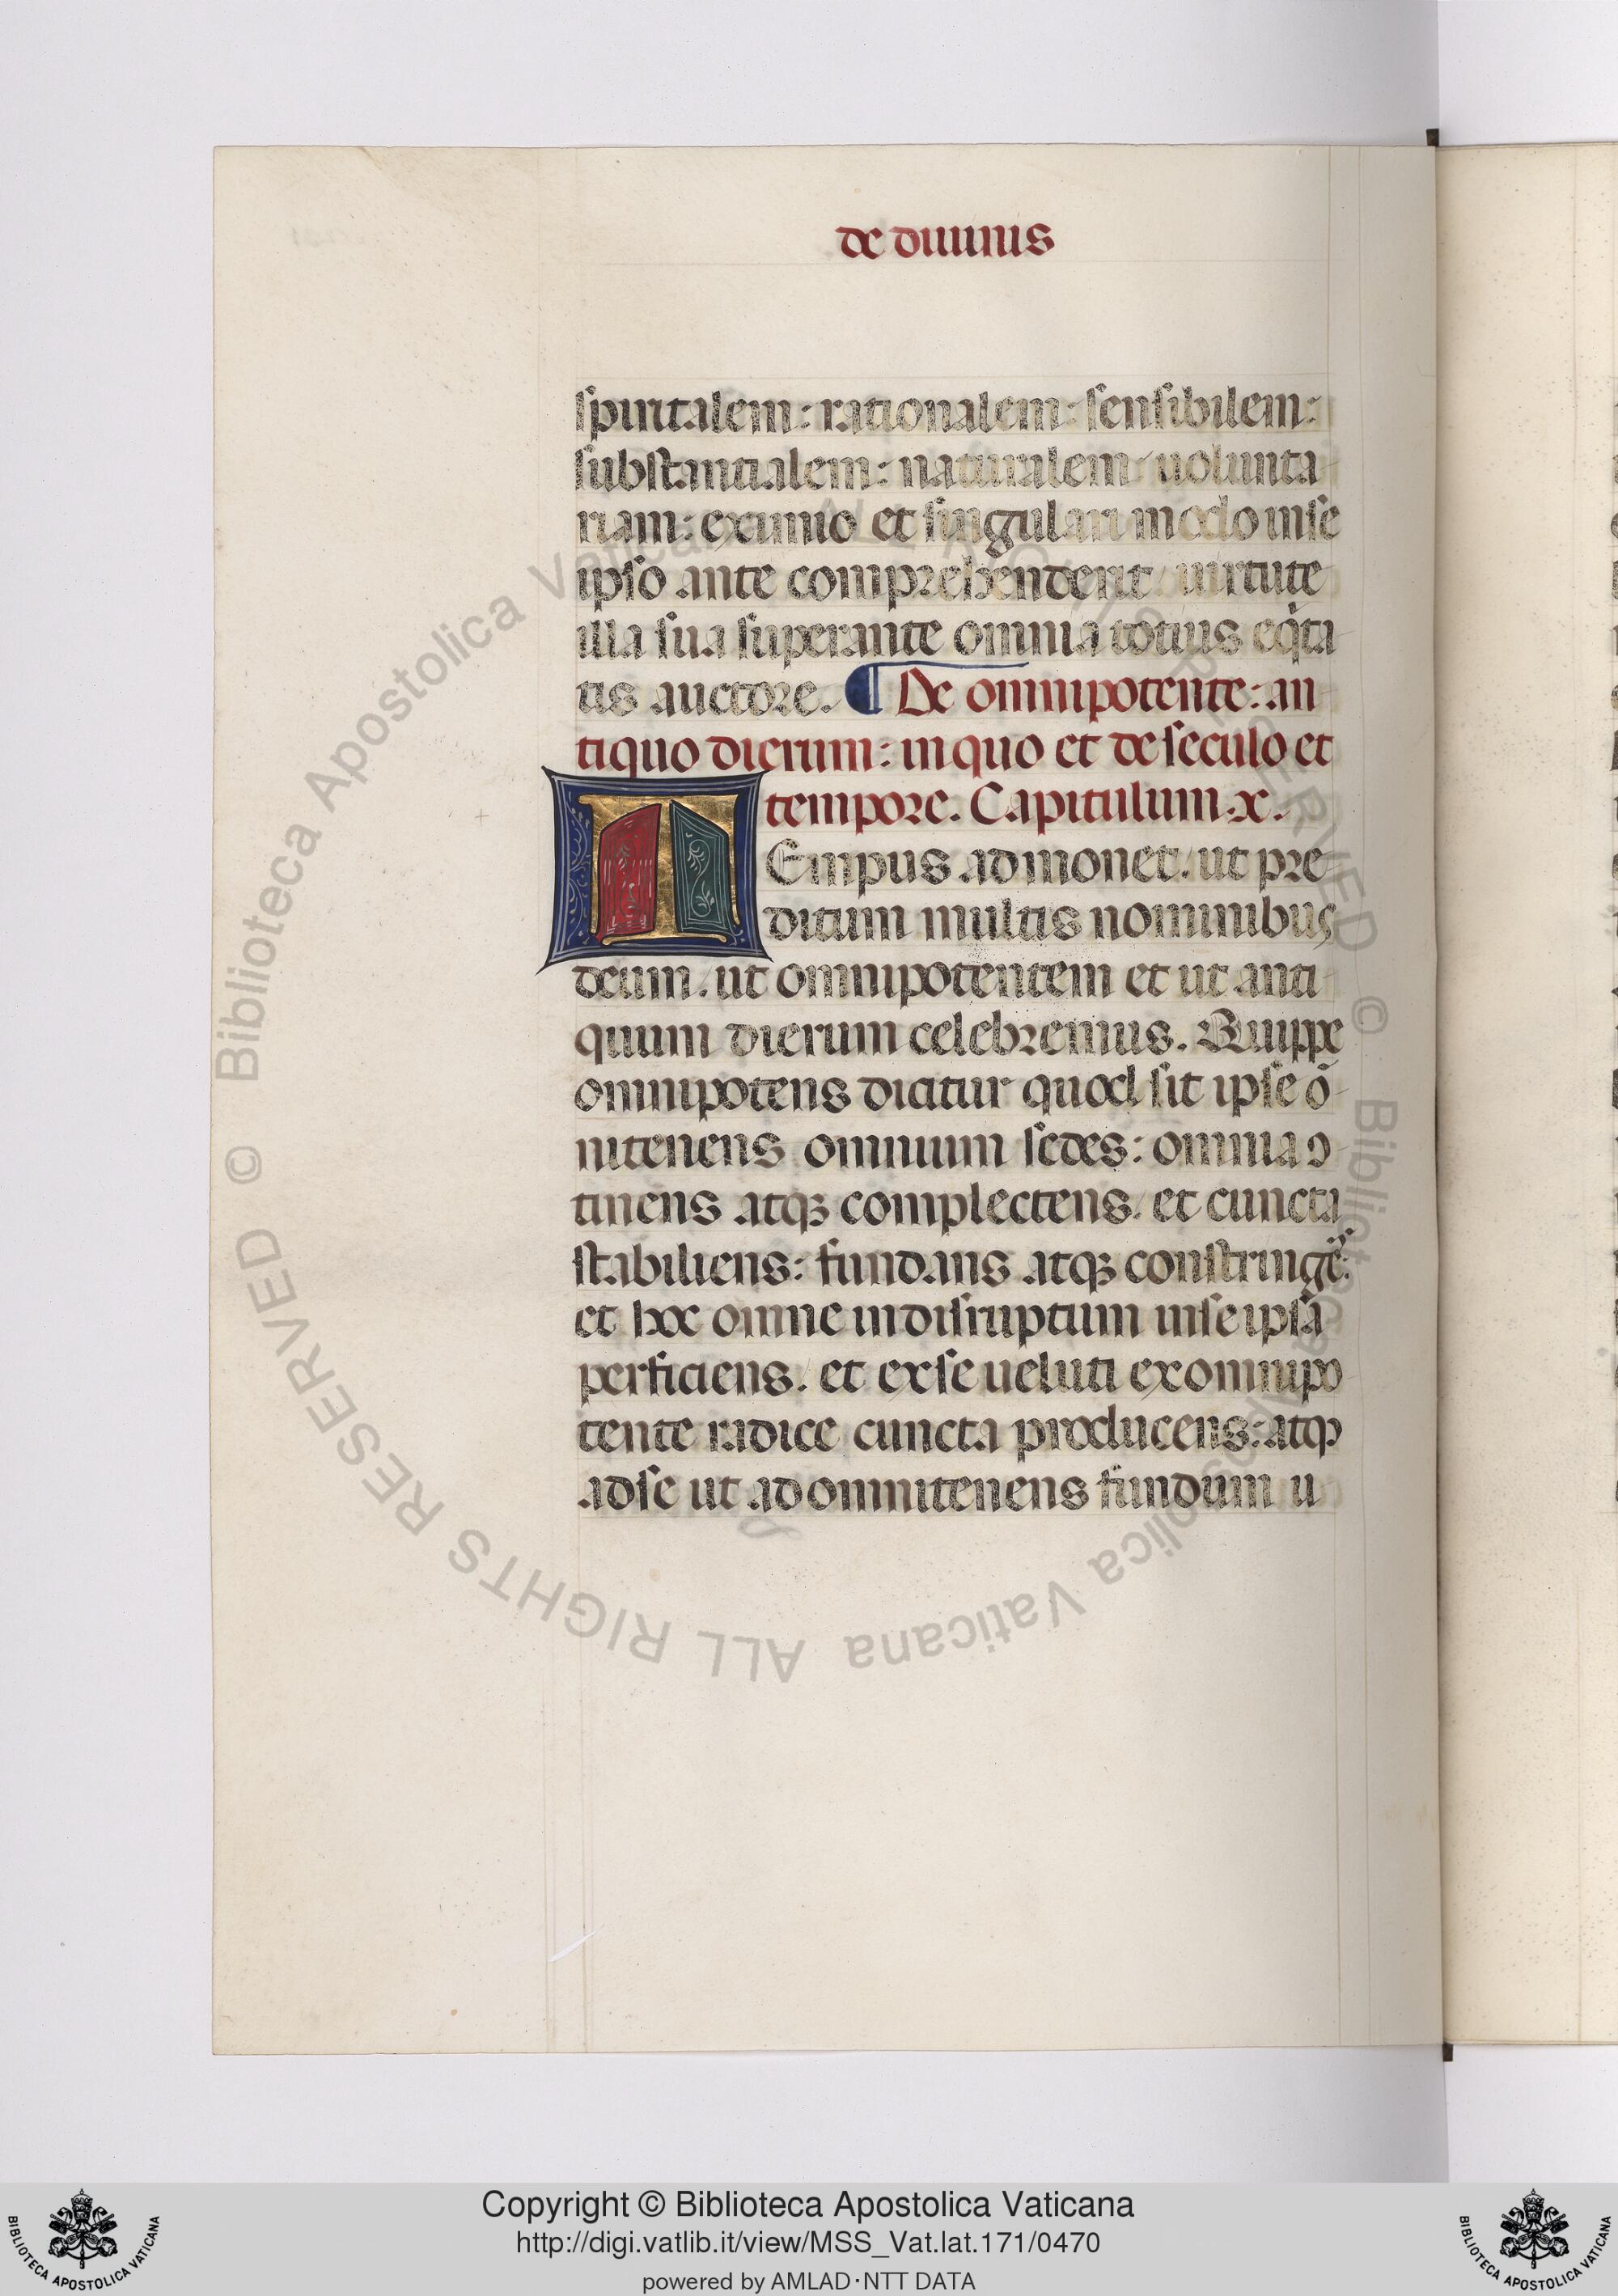 de diuinis
spiritalem: rationalem: sensibilem:
substantialem: naturalem uolunta
riam: eximio et singulari modo inse
ipso ante comprehenderit uirtute
illa sua superante omnia totius eq̇ta
tis auctore. ¶ De omnipotente: an
tiquo dierum: in quo et de seculo et
tempore. Capitulum .x.
TEmpus admonet. ut pre
dicum multis nominibus
deum. ut omnipotentem et ut anti
quum dierum celebremus. Quippe
omnipotens dicitur quod sit ipse õ
nitenens omnium sedes: omnia ꝯ
tinens atqꝫ complectens. et cuncta
stabiliens: fundans atqꝫ constringẽs:
et hoc omne indisruptum inse ipsa
perficiens. et exse ueluti exomnipo
tente radice cuncta producens: atqꝫ
adse ut ad omnitenens fundum u
© Biblioteca Apostolica Vaticana ALL RIGHTS RESERVED © Biblioteca Apostolica Vaticana ALL RIGHTS RESERVED
Copyright © Biblioteca Apostolica Vaticana
http://digi.vatlib.it/view/MSS_Vat.lat.171/0470
powered by AMLAD·NTT DATA
BIBLIOTECA APOSTOLICA VATICANA
BIBLIOTECA APOSTOLICA VATICANA